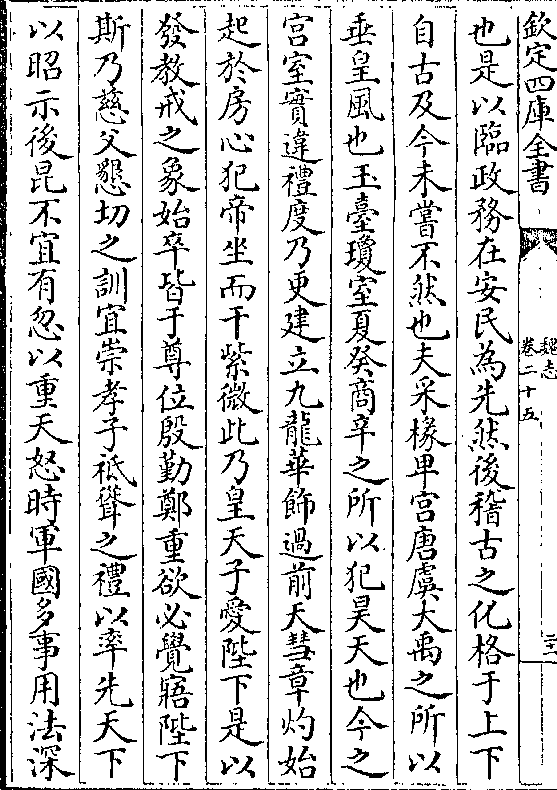 欽定四庫全書
魏志
卷二十五
也是以臨政務在安民為先然後稽古之化格于上下
自古及今未嘗不然也夫采椽卑宫唐虞大禹之所以
垂皇風也玉臺瓊室夏癸商辛之所以犯昊天也今之
宫室實違禮度乃更建立九龍華飾過前天彗章灼始
起於房心犯帝坐而干紫微此乃皇天子愛陛下是以
發教戒之象始卒皆于尊位殷勤鄭重欲必覺寤陛下
斯乃慈父懇切之訓宜崇孝子祗聳之禮以率先天下
以昭示後昆不宜有忽以重天怒時軍國多事用法深